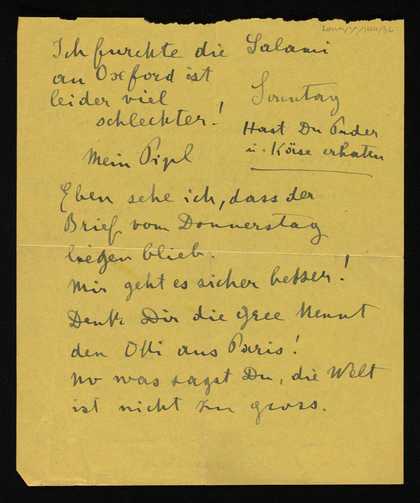 Ich furchte die Salami
an Oxford ist
leider viel
schlechter!
Sonntag
Hast Du Puder
u. Käse erhalten
Mein Pipl
Eben sehe ich, dass der
Brief vom Donnerstag
liegen blieb.
Mir geht es sicher besser!
Denk Dir die Gree kennt
den Otti aus Paris!
No was sagst Du, die Welt
ist nicht zu gross.